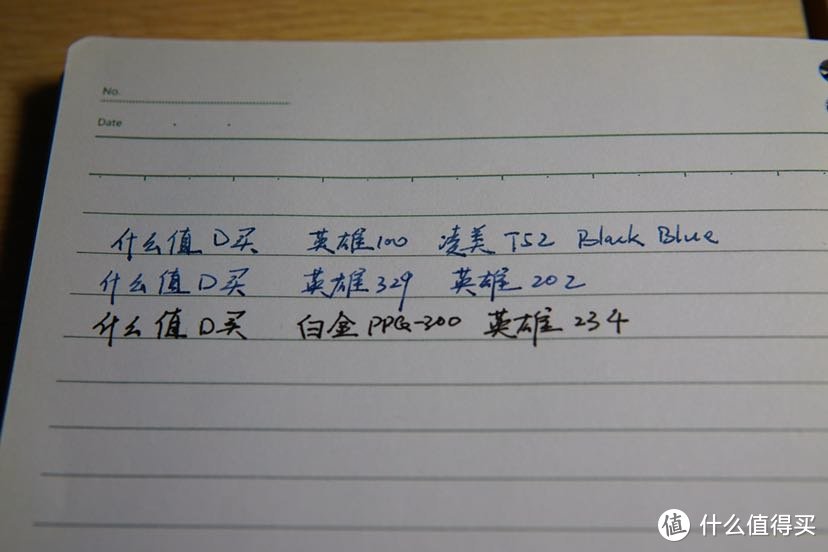 No.
Date
什么值D买 英雄100 凌美T52 Black Blue
什么值D买 英雄329 英雄202
什么值D买 白金PPQ-300 英雄234
值 什么值得买